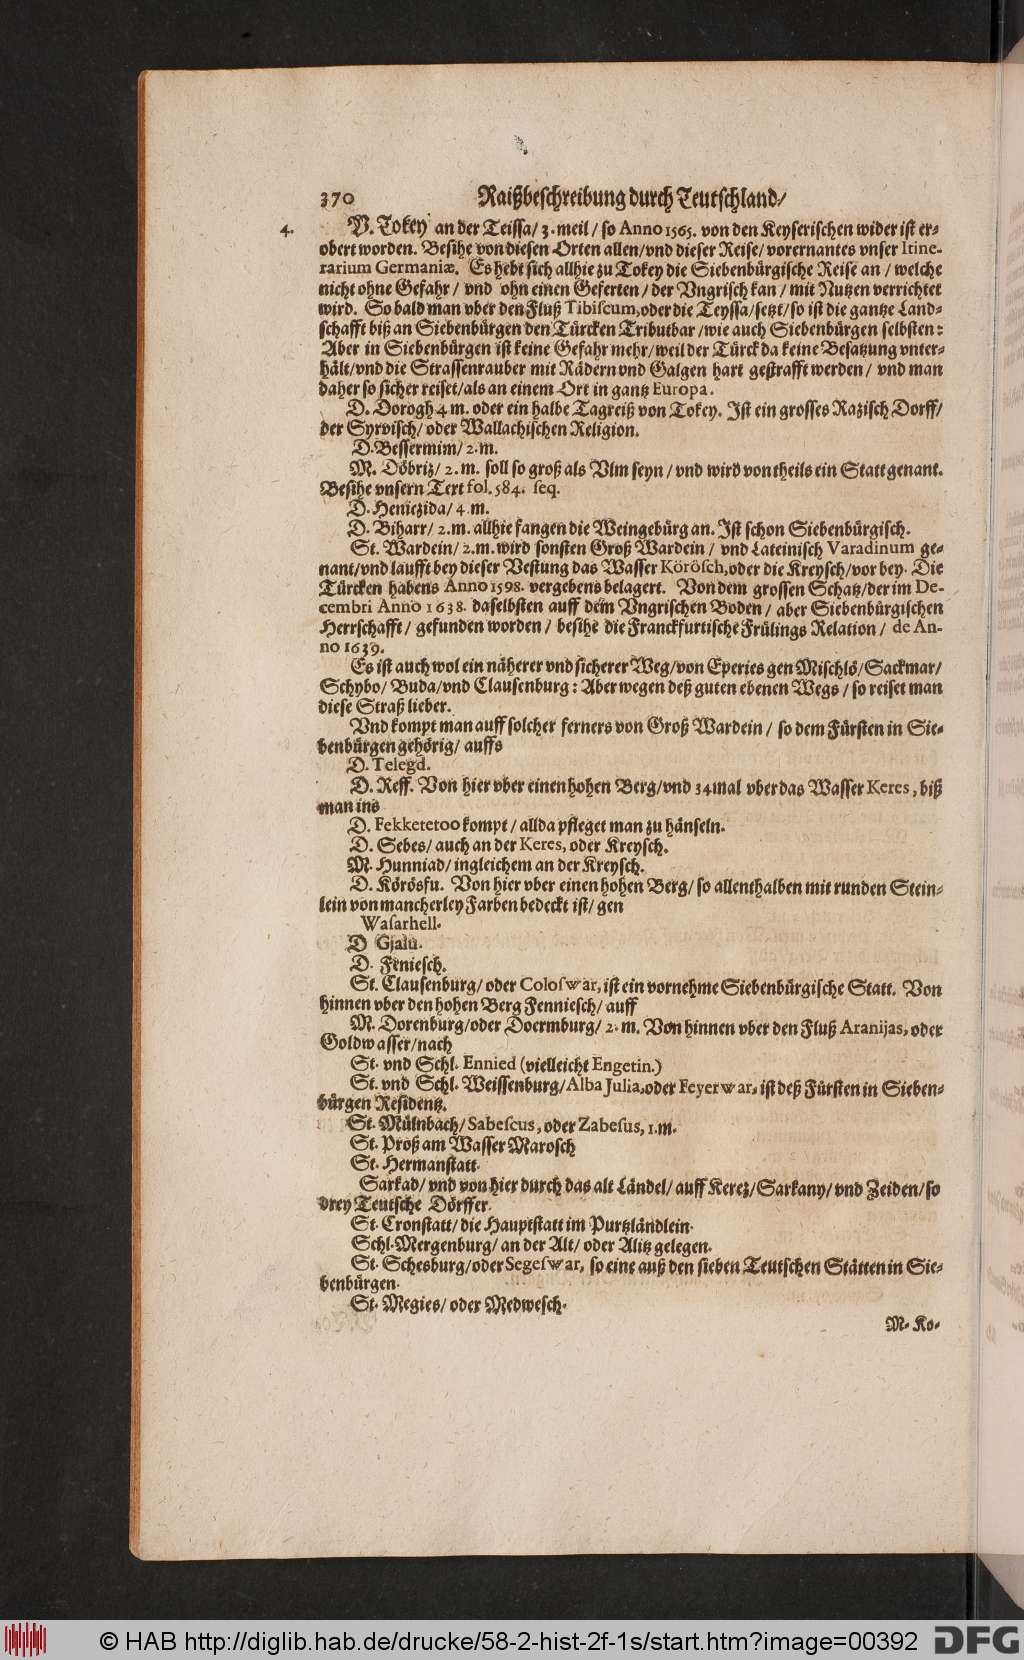 370 Raißbeschreibung durch Teutschland/
4. V. Tokey an der Teissa/ 3. meil/ so Anno 1565. von den Keyserischen wider ist er-
obert worden. Besihe von diesen Orten allen/ vnd dieser Reise/ vorernantes vnser Itine-
rarium Germaniæ. Es hebt sich allhie zu Tokey die Siebenbürgische Reise an / welche
nicht ohne Gefahr / vnd ohn einen Geferten / der Vngrisch kan / mit Nutzen verrichtet
wird. So bald man vber den Fluß Tibiſcum, oder die Teyssa/ setzt/ so ist die gantze Land-
schafft biß an Siebenbürgen den Türcken Tributbar / wie auch Siebenbürgen selbsten:
Aber in Siebenbürgen ist keine Gefahr mehr/ weil der Türck da keine Besatzung vnter-
hält/ vnd die Strassenrauber mit Rädern vnd Galgen hart gestrafft werden / vnd man
daher so sicher reiset/ als an einem Ort in gantz Europa.
D. Dorogh 4 m. oder ein halbe Tagreiß von Tokey. Ist ein grosses Razisch Dorff/
der Syrvisch/ oder Wallachischen Religion.
D. Bessermim/ 2. m.
M. Döbriz/ 2. m. soll so groß als Vlm seyn / vnd wird von theils ein Statt genant.
Besihe vnsern Text fol. 584. ſeq.
D. Heniezida/ 4 m.
D. Biharr/ 2. m. allhie fangen die Weingebürg an. Ist schon Siebenbürgisch.
St. Wardein/ 2. m. wird sonsten Groß Wardein / vnd Lateinisch Varadinum ge-
nant/ vnd laufft bey dieser Vestung das Wasser Körösch, oder die Kreysch/ vor bey. Die
Türcken habens Anno 1598. vergebens belagert. Von dem grossen Schatz/ der im De-
cembri Anno 1638. daselbsten auff dem Vngrischen Boden / aber Siebenbürgischen
Herrschafft / gefunden worden / besihe die Franckfurtische Frülings Relation / de An-
no 1639.
Es ist auch wol ein näherer vnd sicherer Weg/ von Eperies gen Mischlö/ Sackmar/
Schybo/ Buda/ vnd Clausenburg: Aber wegen deß guten ebenen Wegs / so reiset man
diese Straß lieber.
Vnd kompt man auff solcher ferners von Groß Wardein / so dem Fürsten in Sie-
benbürgen gehörig/ auffs
D. Telegd.
D. Reff. Von hier vber einen hohen Berg/ vnd 34 mal vber das Wasser Keres, biß
man ins
D. Fekketetoo kompt / allda pfleget man zu hänseln.
D. Sebes/ auch an der Keres, oder Kreysch.
M. Hunniad/ ingleichem an der Kreysch.
D. Körösfu. Von hier vber einen hohen Berg/ so allenthalben mit runden Stein-
lein von mancherley Farben bedeckt ist/ gen
Waſarhell.
D Gjalu.
D. Feniesch.
St. Clausenburg/ oder Coloſwar, ist ein vornehme Siebenbürgische Statt. Von
hinnen vber den hohen Berg Fenniesch/ auff
M. Dorenburg/ oder Doermburg/ 2. m. Von hinnen vber den Fluß Aranijas, oder
Goldwasser/ nach
St. vnd Schl. Ennied (vielleicht Engetin.)
St. vnd Schl. Weissenburg/ Alba Julia, oder Feyerwar, ist deß Fürsten in Sieben-
bürgen Residentz.
St. Mülnbach/ Sabeſcus, oder Zabeſus, 1. m.
St. Proß am Wasser Marosch
St. Hermanstatt.
Sarkad/ vnd von hier durch das alt Ländel/ auff Kerez/ Sarkany/ vnd Zeiden/ so
drey Teutsche Dörffer.
St. Cronstatt/ die Hauptstatt im Purtzländlein.
Schl. Mergenburg/ an der Alt/ oder Alitz gelegen.
St. Schesburg/ oder Segeſwar, so eine auß den sieben Teutschen Stätten in Sie-
benbürgen.
St. Megies/ oder Medwesch.
M. Ko-
© HAB http://diglib.hab.de/drucke/58-2-hist-2f-1s/start.htm?image=00392 DFG